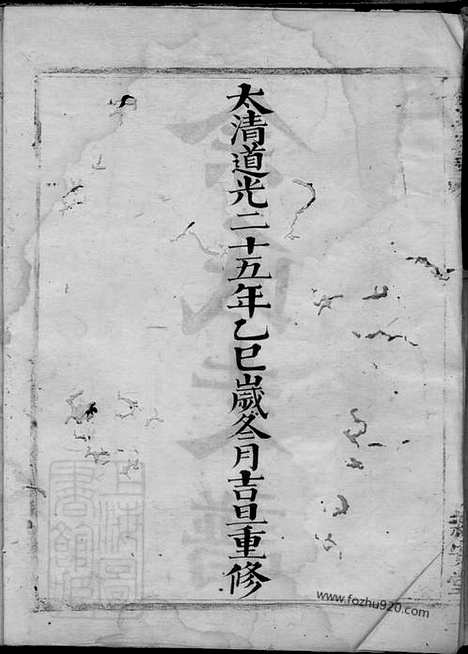 太清道光二十五年乙巳歲冬月吉旦重修
www.fozhu920.com